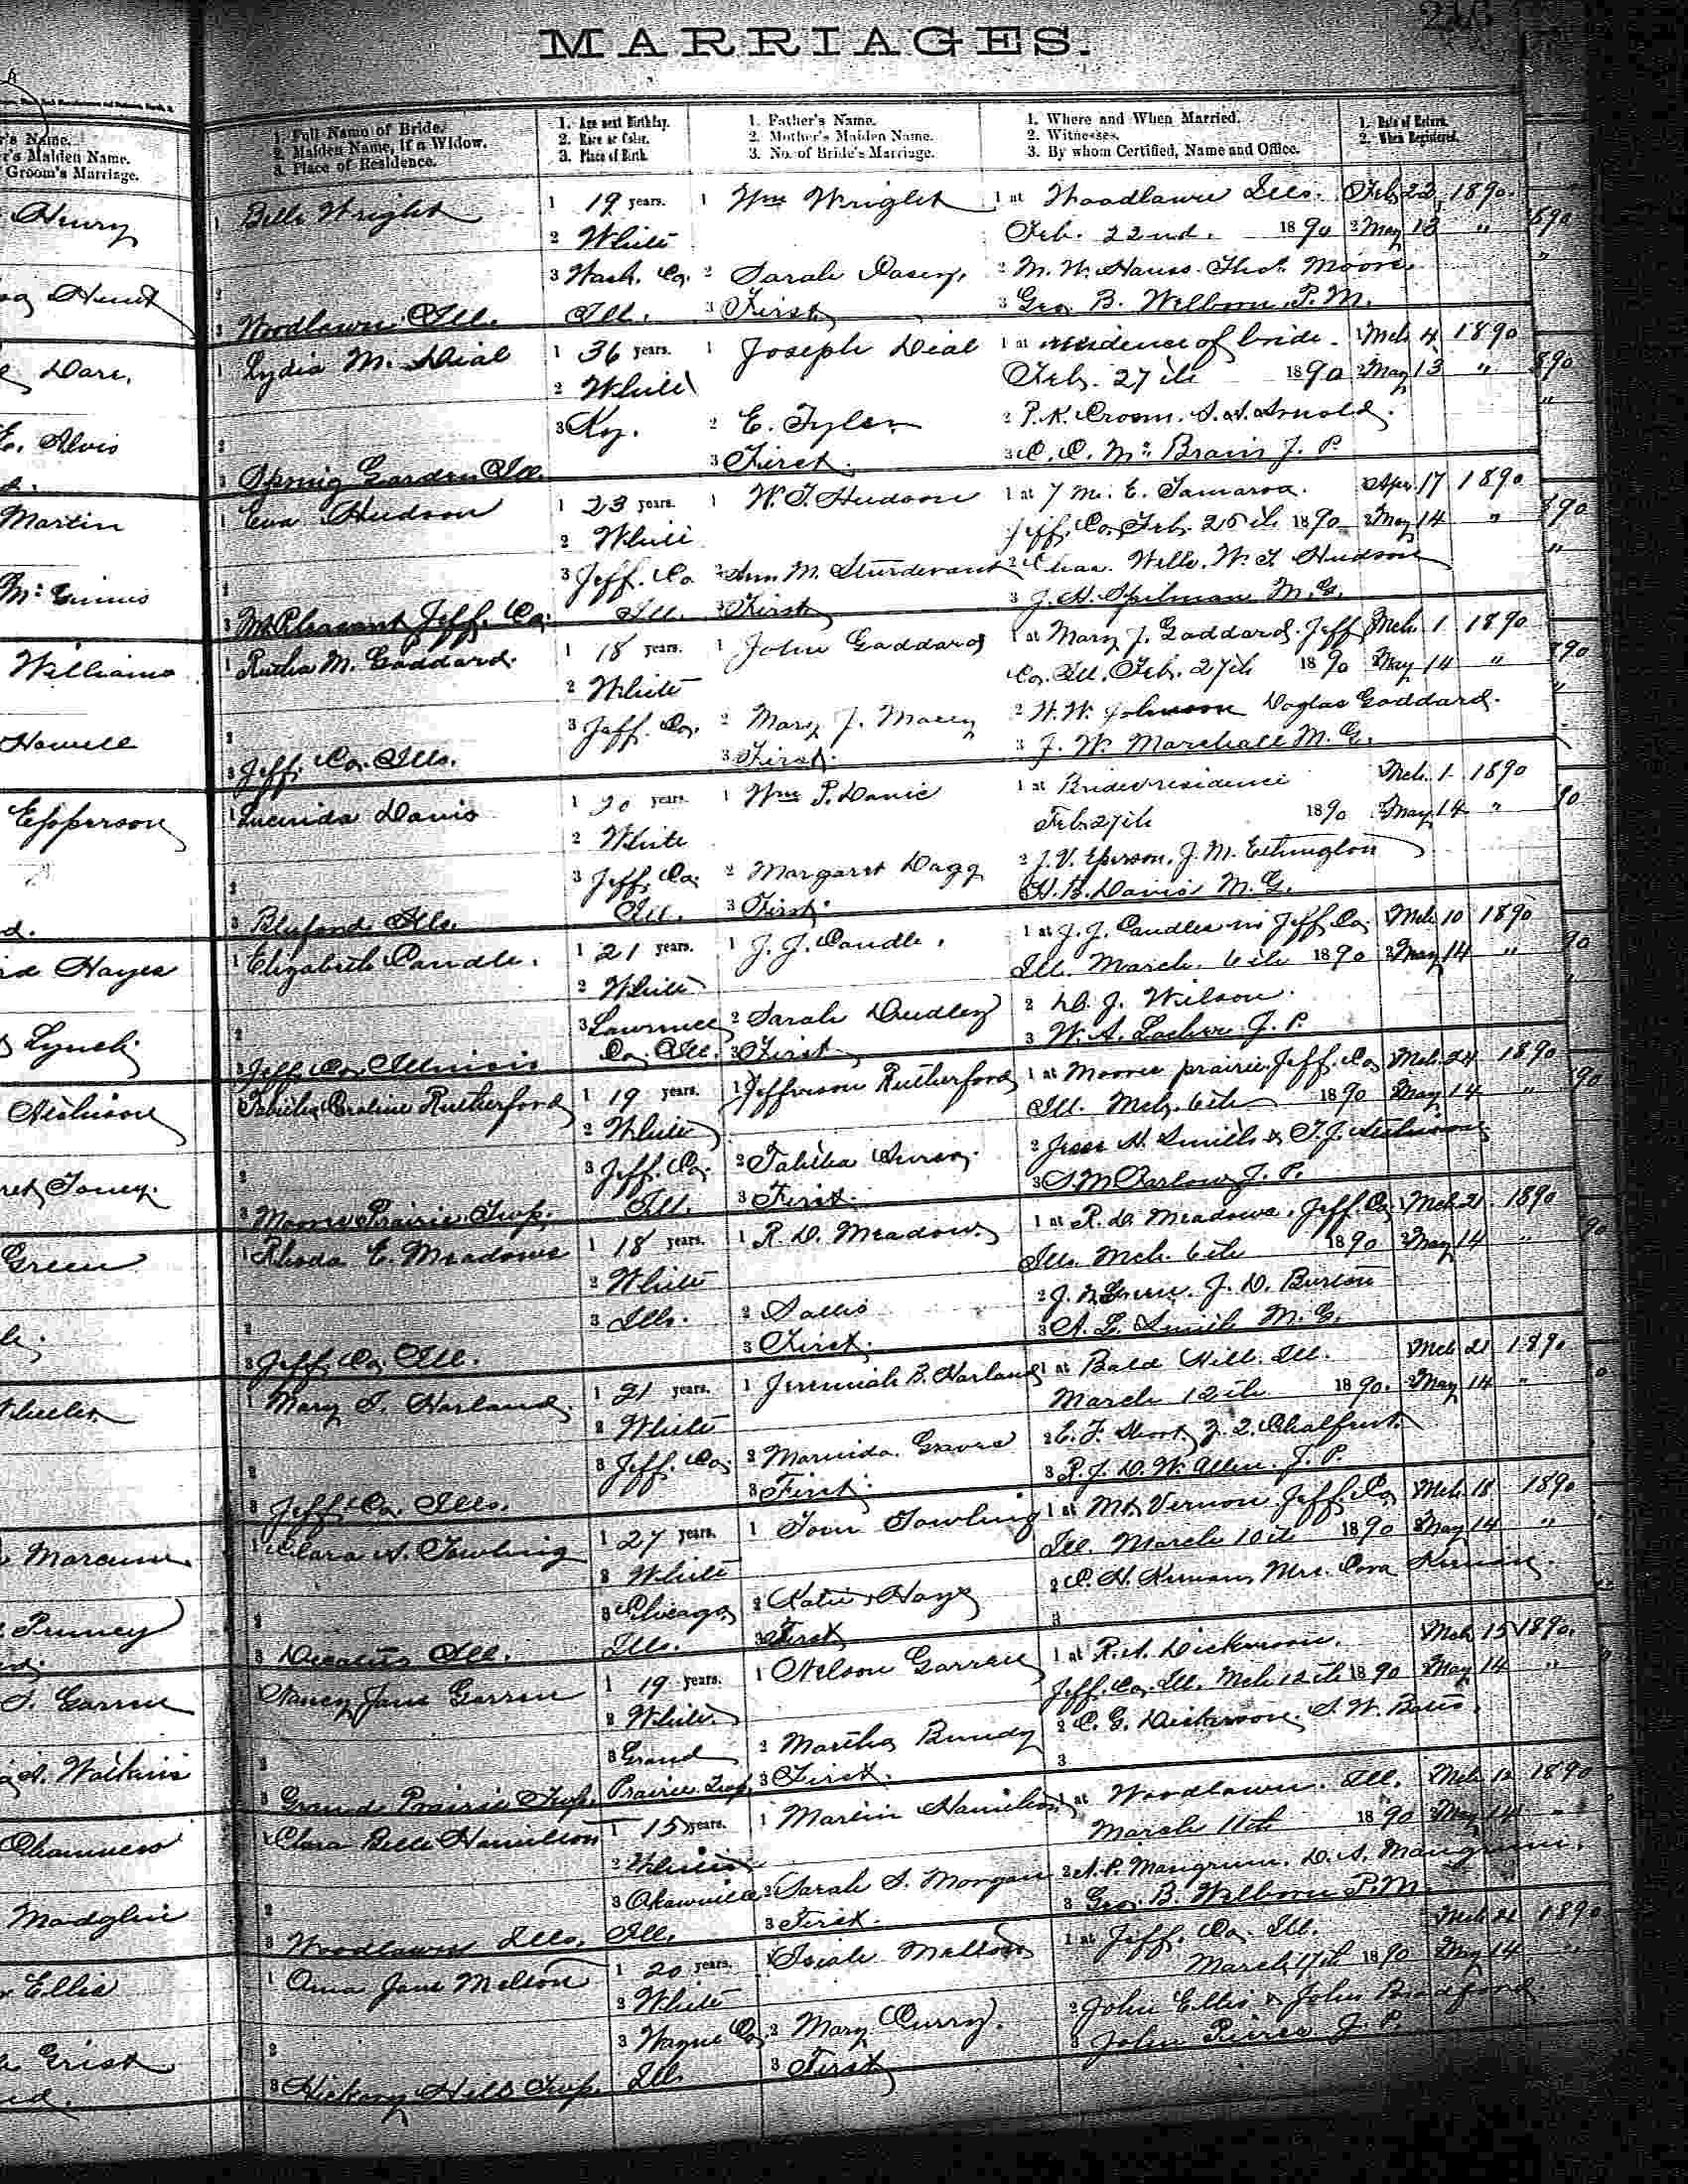 MARRIAGES.
's Name.
r's Maiden Name.
Groom's Marriage.
1. Full Name of Bride.
2. Maiden Name, if a Widow.
3. Place of Residence.
1. Age next Birthday.
2. Race or Color.
3. Place of Birth.
1. Father's Name.
2. Mother's Maiden Name.
3. No. of Bride's Marriage.
1. Where and When Married.
2. Witnesses.
3. By whom Certified, Name and Office.
1. Date of Return.
2. When Registered.
Henry
1 Belle Wright 1 19 years. 1 Wm Wright 1 at Woodlawn Ills. Feb 22, 1890.
2 White Feb. 22nd. 1890 2 May 13 "
2 3 Wash. Co. 2 Sarah Casey, 2 M. W. Hauss. Thos. Moore.
3 Woodlawn Ill. Ill. 3 First 3 Geo. B. Welborn P.M.
Dare,
1 Lydia M. Dial 1 36 years. 1 Joseph Dial 1 at residence of bride. Mch. 4 1890
2 White Feb. 27th 1890 2 May 13 "
E. Alvis
2 3 Ky. 2 E. Tyler 2 P. K. Croom. S. A. Arnold.
3 Spring Garden Ill. 3 First. 3 C. C. Mc Brain J. P.
Martin
1 Eva Hudson 1 23 years. 1 W. T. Hudson 1 at 7 mi. E. Tamaroa. Apr. 17 1890
2 White Jeff. Co. Feb. 25th 1890 2 May 14 "
McGinnis
2 3 Jeff. Co 2 Ann M. Sturdevant 2 Chas. Wells. W. T. Hudson
3 Mt Pleasant Jeff. Co. Ill. 3 First 3 J. H. Spilman M. G.
Williams
1 Rutha M. Goddard. 1 18 years. 1 John Goddard 1 at Mary J. Goddard. Jeff Mch. 1 1890
2 White Co. Ill. Feb. 27th 1890 May 14 "
Howell
2 3 Jeff. Co. 2 Mary J. Macey 2 W. W. Johnson Doglas Goddard.
3 Jeff. Co. Ills. 3 First. 3 J. W. Marshall M. G.
Epperson
1 Lucinda Davis 1 20 years. 1 Wm P. Davis 1 at Brides residence Mch. 1 1890
2 White Feb. 27th 1890 May 14 "
2 3 Jeff. Co. 2 Margaret Dagg 2 J. V. Eperson. J. M. Etherington
3 Bluford Ills. Ill. 3 First. H. B. Davis M. G.
Hayes
1 Elizabeth Caudle. 1 21 years. 1 J. J. Caudle. 1 at J. J. Caudles in Jeff. Co. Mch. 10 1890
2 White Ill. March. 6th 1890 2 May 14 "
Lynch
2 3 Lawrence 2 Sarah Dudley 2 D. J. Wilson.
3 Jeff. Co. Illinois Co. Ill. 3 First 3 W. A. J. P.
1 Tabitha Caroline Rutherford 1 19 years. 1 Jefferson Rutherford 1 at Moores prairie Jeff. Co. Mch. 24 1890
2 White Ill. Mch. 6th 1890 May 14 "
Toney.
2 3 Jeff. Co. 2 Tabitha 2 Jesse H. Smith & T. J.
3 Moores Prairie Twp. Ill. 3 First. 3 S. M Barlow J. P.
Green
1 Rhoda E. Meadows 1 18 years. 1 R. D. Meadows 1 at R. D. Meadows. Jeff. Co. Mch. 21 1890
2 White Ills. Mch. 6th 1890 2 May 14 "
2 3 Ills. 2 Sallie 2 J. D. Burton
3 Jeff. Co. Ill. 3 First. 3 A. L. Smith M. G.
Wheeler
1 Mary I. Harland. 1 21 years. 1 Jeremiah B. Harland 1 at Bald Hill. Ill. Mch 21 1890
2 White March 12th 1890. 2 May 14 "
2 3 Jeff. Co. 2 2 C. F. Z. Chalfant
3 Jeff. Co. Ills. 3 First. 3 R. J. D. W. Allen. J. P.
Marcum.
1 Clara A. Towling 1 27 years. 1 Tom Towling 1 at Mt. Vernon. Jeff. Co. Mch. 18 1890
2 White Ill. March 10th 1890 2 May 14 "
Pruney
2 3 Chicago 2 Katie Hays 2 C. H. Mrs. Cora
3 Decatur Ill. Ills. 3 First 3
Garren
Nancy Jane Garren 1 19 years. 1 Nelson Garren 1 at R. A. Dickerson. Mch 15 1890.
2 White. Jeff. Co. Ill. Mch 12th 1890 May 14 "
A. Watkins
2 3 Grand 2 Martha Bundy 2 C. G. Dickerson. S. W. Bates.
3 Grand Prairie Twp. Prairie Twp. 3 First. 3
Chamness
1 Clara Belle Hamilton 1 15 years. 1 Martin Hamilton 1 at Woodlawn. Ill. Mch 12 1890
2 White March 11th 1890 May 14 "
Madglin
2 3 Okawville 2 Sarah S. Morgan 2 A. P. Mangrum. D. A. Mangrum.
3 Woodlawn Ills. Ill. 3 First. 3 Geo. B. Welborn P.M.
Ellis
1 Oma Jane Melton 1 20 years. 1 Isiah Melton 1 at Jeff. Co. Ill. Mch 21 1890
2 White March 17th 1890 May 14 "
Grist
2 3 Wayne Co. 2 Mary Curry. 2 John Ellis & John Bradford.
3 Hickory Hill Twp. Ill 3 First 3 John Pierce J. P.